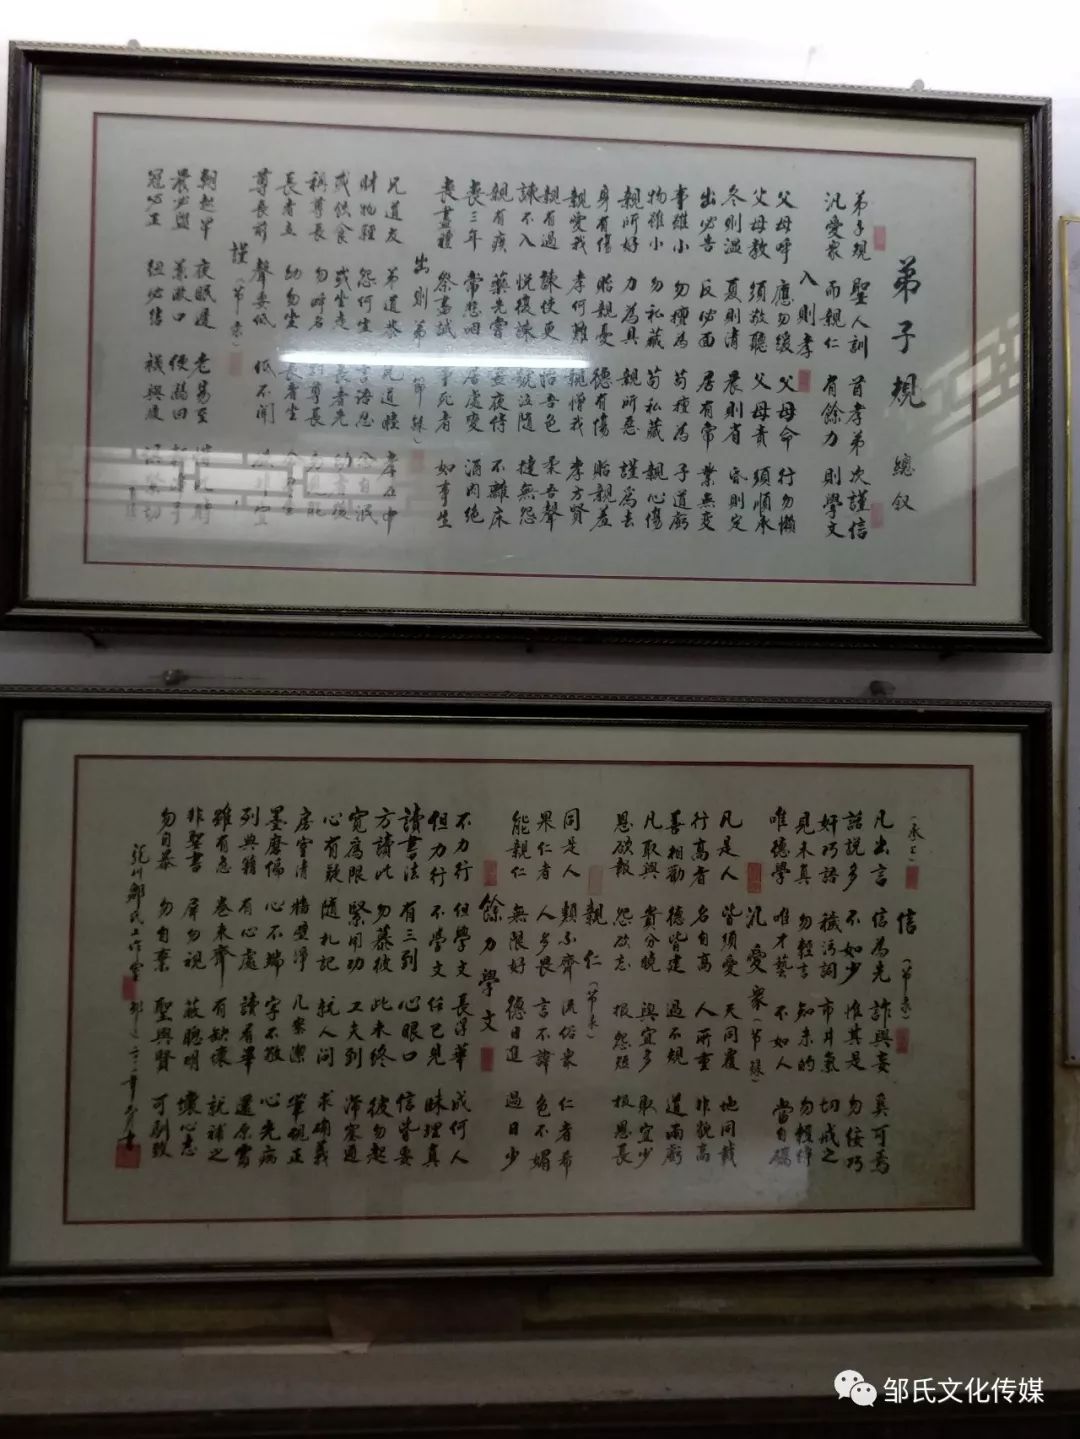 弟子規 總叙
弟子規 聖人訓 首孝弟 次謹信
汎愛眾 而親仁 有餘力 則學文
入則孝
父母呼 應勿緩 父母命 行勿懶
父母教 須敬聽 父母責 須順承
冬則溫 夏則清 晨則省 昏則定
出必告 反必面 居有常 業無變
事雖小 勿擅為 苟擅為 子道虧
物雖小 勿私藏 苟私藏 親心傷
親所好 力為具 親所惡 謹為去
身有傷 貽親憂 德有傷 貽親羞
親愛我 孝何難 親憎我 孝方賢
親有過 諫使更 怡吾色 柔吾聲
諫不入 悅復諫 號泣隨 撻無怨
親有疾 藥先嘗 晝夜侍 不離床
喪三年 常悲咽 居處變 酒肉絕
喪盡禮 祭盡誠 事死者 如事生
出則弟（節錄）
兄道友 弟道恭 兄道睦 孝在中
財物輕 怨何生 言語忍 忿自泯
或飲食 或坐走 長者先 幼者後
稱尊長 勿呼名 對尊長 勿見能
長者立 幼勿坐 長者坐
尊長前 聲要低 低不聞
謹（節錄）
朝起早 夜眠遲 老易至 惜此時
晨必盥 兼漱口 便溺回
冠必正 紐必結 襪與履
（承上） 信（節錄）
凡出言 信為先 詐與妄 奚可焉
話說多 不如少 惟其是 勿佞巧
奸巧語 穢污詞 市井氣 切戒之
見未真 勿輕言 知未的 勿輕傳
唯德學 唯才藝 不如人 當自礪
汎愛眾（節錄）
凡是人 皆須愛 天同覆 地同載
行高者 名自高 人所重 非貌高
善相勸 德皆建 過不規 道兩虧
凡取與 貴分曉 與宜多 取宜少
恩欲報 怨欲忘 報怨短 報恩長
親仁（節錄）
同是人 類不齊 流俗眾 仁者希
果仁者 人多畏 言不諱 色不媚
能親仁 無限好 德日進 過日少
餘力學文
不力行 但學文 長浮華 成何人
但力行 不學文 任己見 昧理真
讀書法 有三到 心眼口 信皆要
方讀此 勿慕彼 此未終 彼勿起
寬為限 緊用功 工夫到 滯塞通
心有疑 隨札記 就人問 求確義
房室清 牆壁淨 几案潔 筆硯正
墨磨偏 心不端 字不敬 心先病
列典籍 有定處 讀看畢 還原處
雖有急 卷束齊 有缺壞 就補之
非聖書 屏勿視 蔽聰明 壞心志
勿自暴 勿自棄 聖與賢 可馴致
邹氏文化传媒